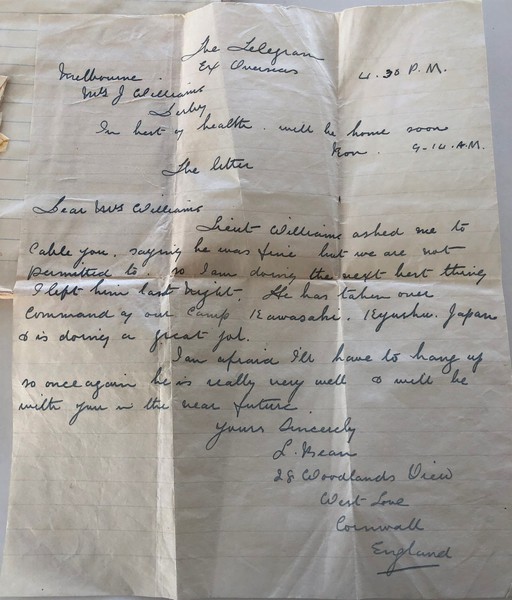 The Telegram
Ex Overseas
Melbourne. 4.30 P.M.
Mrs J Williams
Derby
In best of health. will be home soon
Ron. 9-14.A.M.
The letter
Dear Mrs Williams
Lieut Williams asked me to
Cable you. saying he was fine but we are not
permitted to. so I am doing the next best thing
I left him last night. He has taken over
Command of our Camp Kawasaki. Kyushu. Japan
& is doing a great job.
I am afraid I'll have to hang up
so once again he is really very well & will be
with you in the near future.
Yours Sincerely
L. Bean
28 Woodlands View
West Looe
Cornwall
England